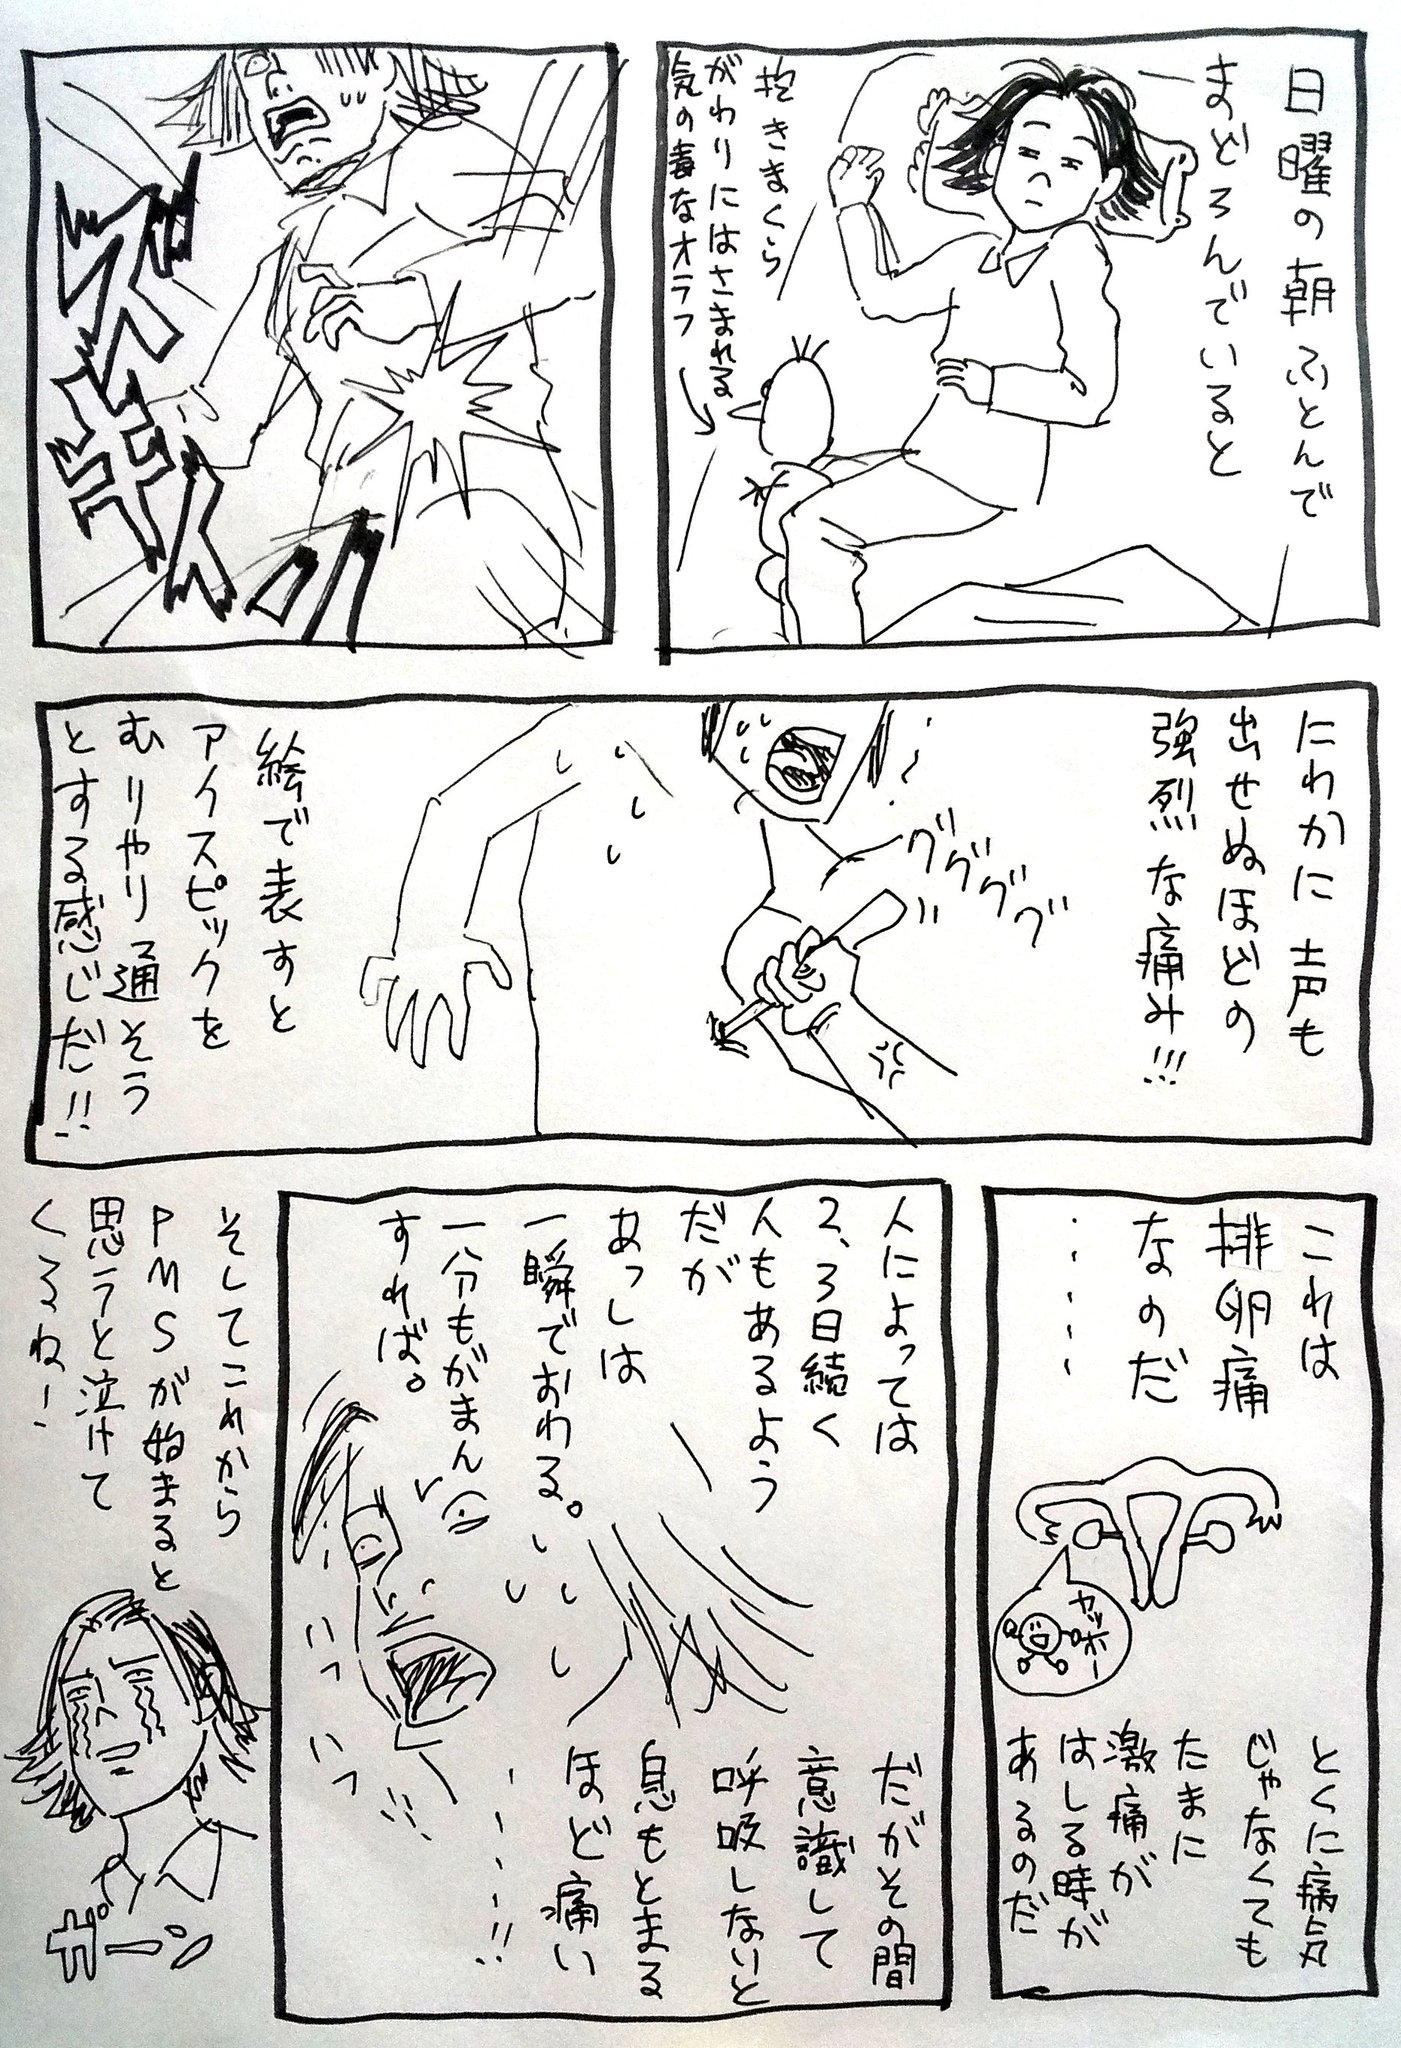 日曜の朝ふとんで
まどろんでいると
抱きまくら
がわりにはさまれる
気の毒なオラフ
ズギィ
ック
にわかに声も
出せぬほどの
強烈な痛み!!!
グググググ
絵で表すと
アイスピックを
むりやり通そう
とする感じだ!!
これは
排卵痛
なのだ
・・・・・
ヤッホー
とくに病気
じゃなくても
たまに
激痛が
はしる時が
あるのだ
人によっては
2、3日続く
人もあるよう
だが
あっしは
一瞬でおわる。
一分もがまん
すれば。
だがその間
意識して
呼吸しないと
息もとまる
ほど痛い
・・・・!!
ハッ
ハッ
そしてこれから
PMSが始まると
思うと泣けて
くるねー
ガーン